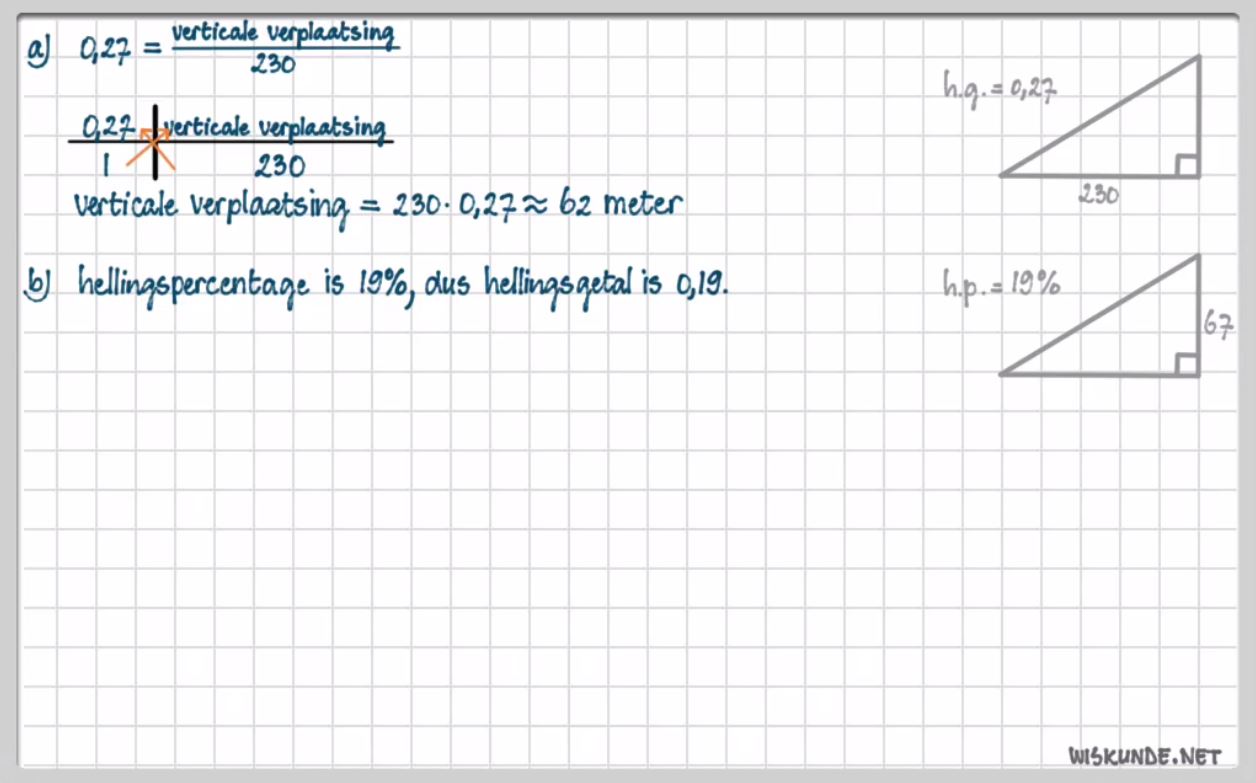 a) 0,27 = verticale verplaatsing
230
h.g. = 0,27
0,27 verticale verplaatsing
1 230
230
verticale verplaatsing = 230 · 0,27 ≈ 62 meter
b) hellingspercentage is 19%, dus hellingsgetal is 0,19.
h.p. = 19%
67
WISKUNDE.NET